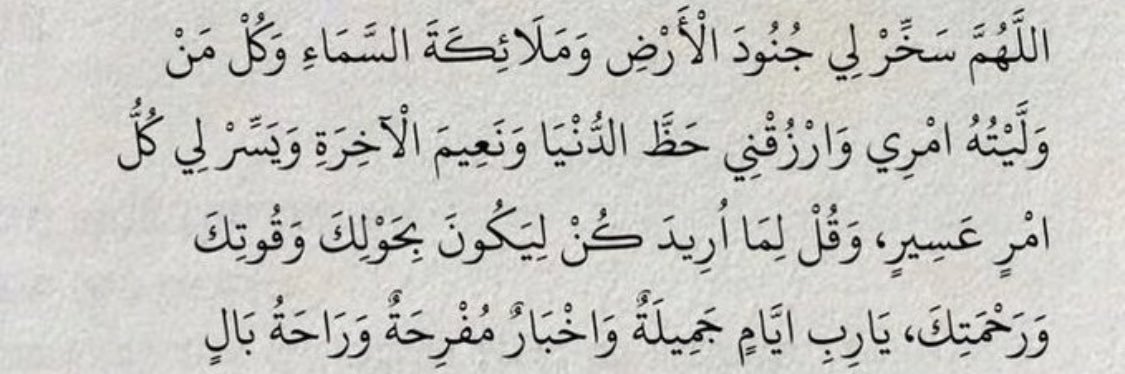 اللَّهُمَّ سَخِّرْ لِي جُنُودَ الْأَرْضِ وَمَلَائِكَةَ السَّمَاءِ وَكُلْ مَنْ
وَلَّيْتُهُ امْرِي وَارْزُقْنِي حَظَّ الدُّنْيَا وَنَعِيمَ الْآخِرَةِ وَيَسِّرْ لِي كُلُّ
امْرٍ عَسِيرٍ، وَقُلْ لِمَا اُرِيدَ كُنْ لِيَكُونَ بِحَوْلِكَ وَقُوتِكَ
وَرَحْمَتِكَ، يَارِبِ ايَّامٍ جَمِيلَةٌ وَاخْبَارٌ مُفْرِحَةٌ وَرَاحَةُ بَالٍ